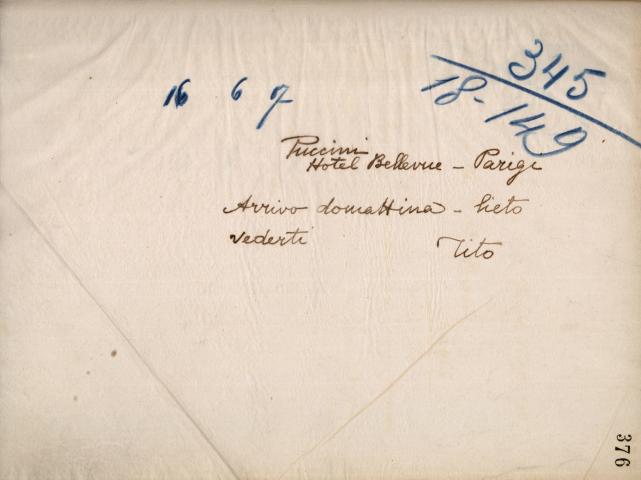 345
18-149
16 6 7
Puccini
Hotel Bellevue - Parigi
Arrivo domattina - lieto
vederti Tito
376